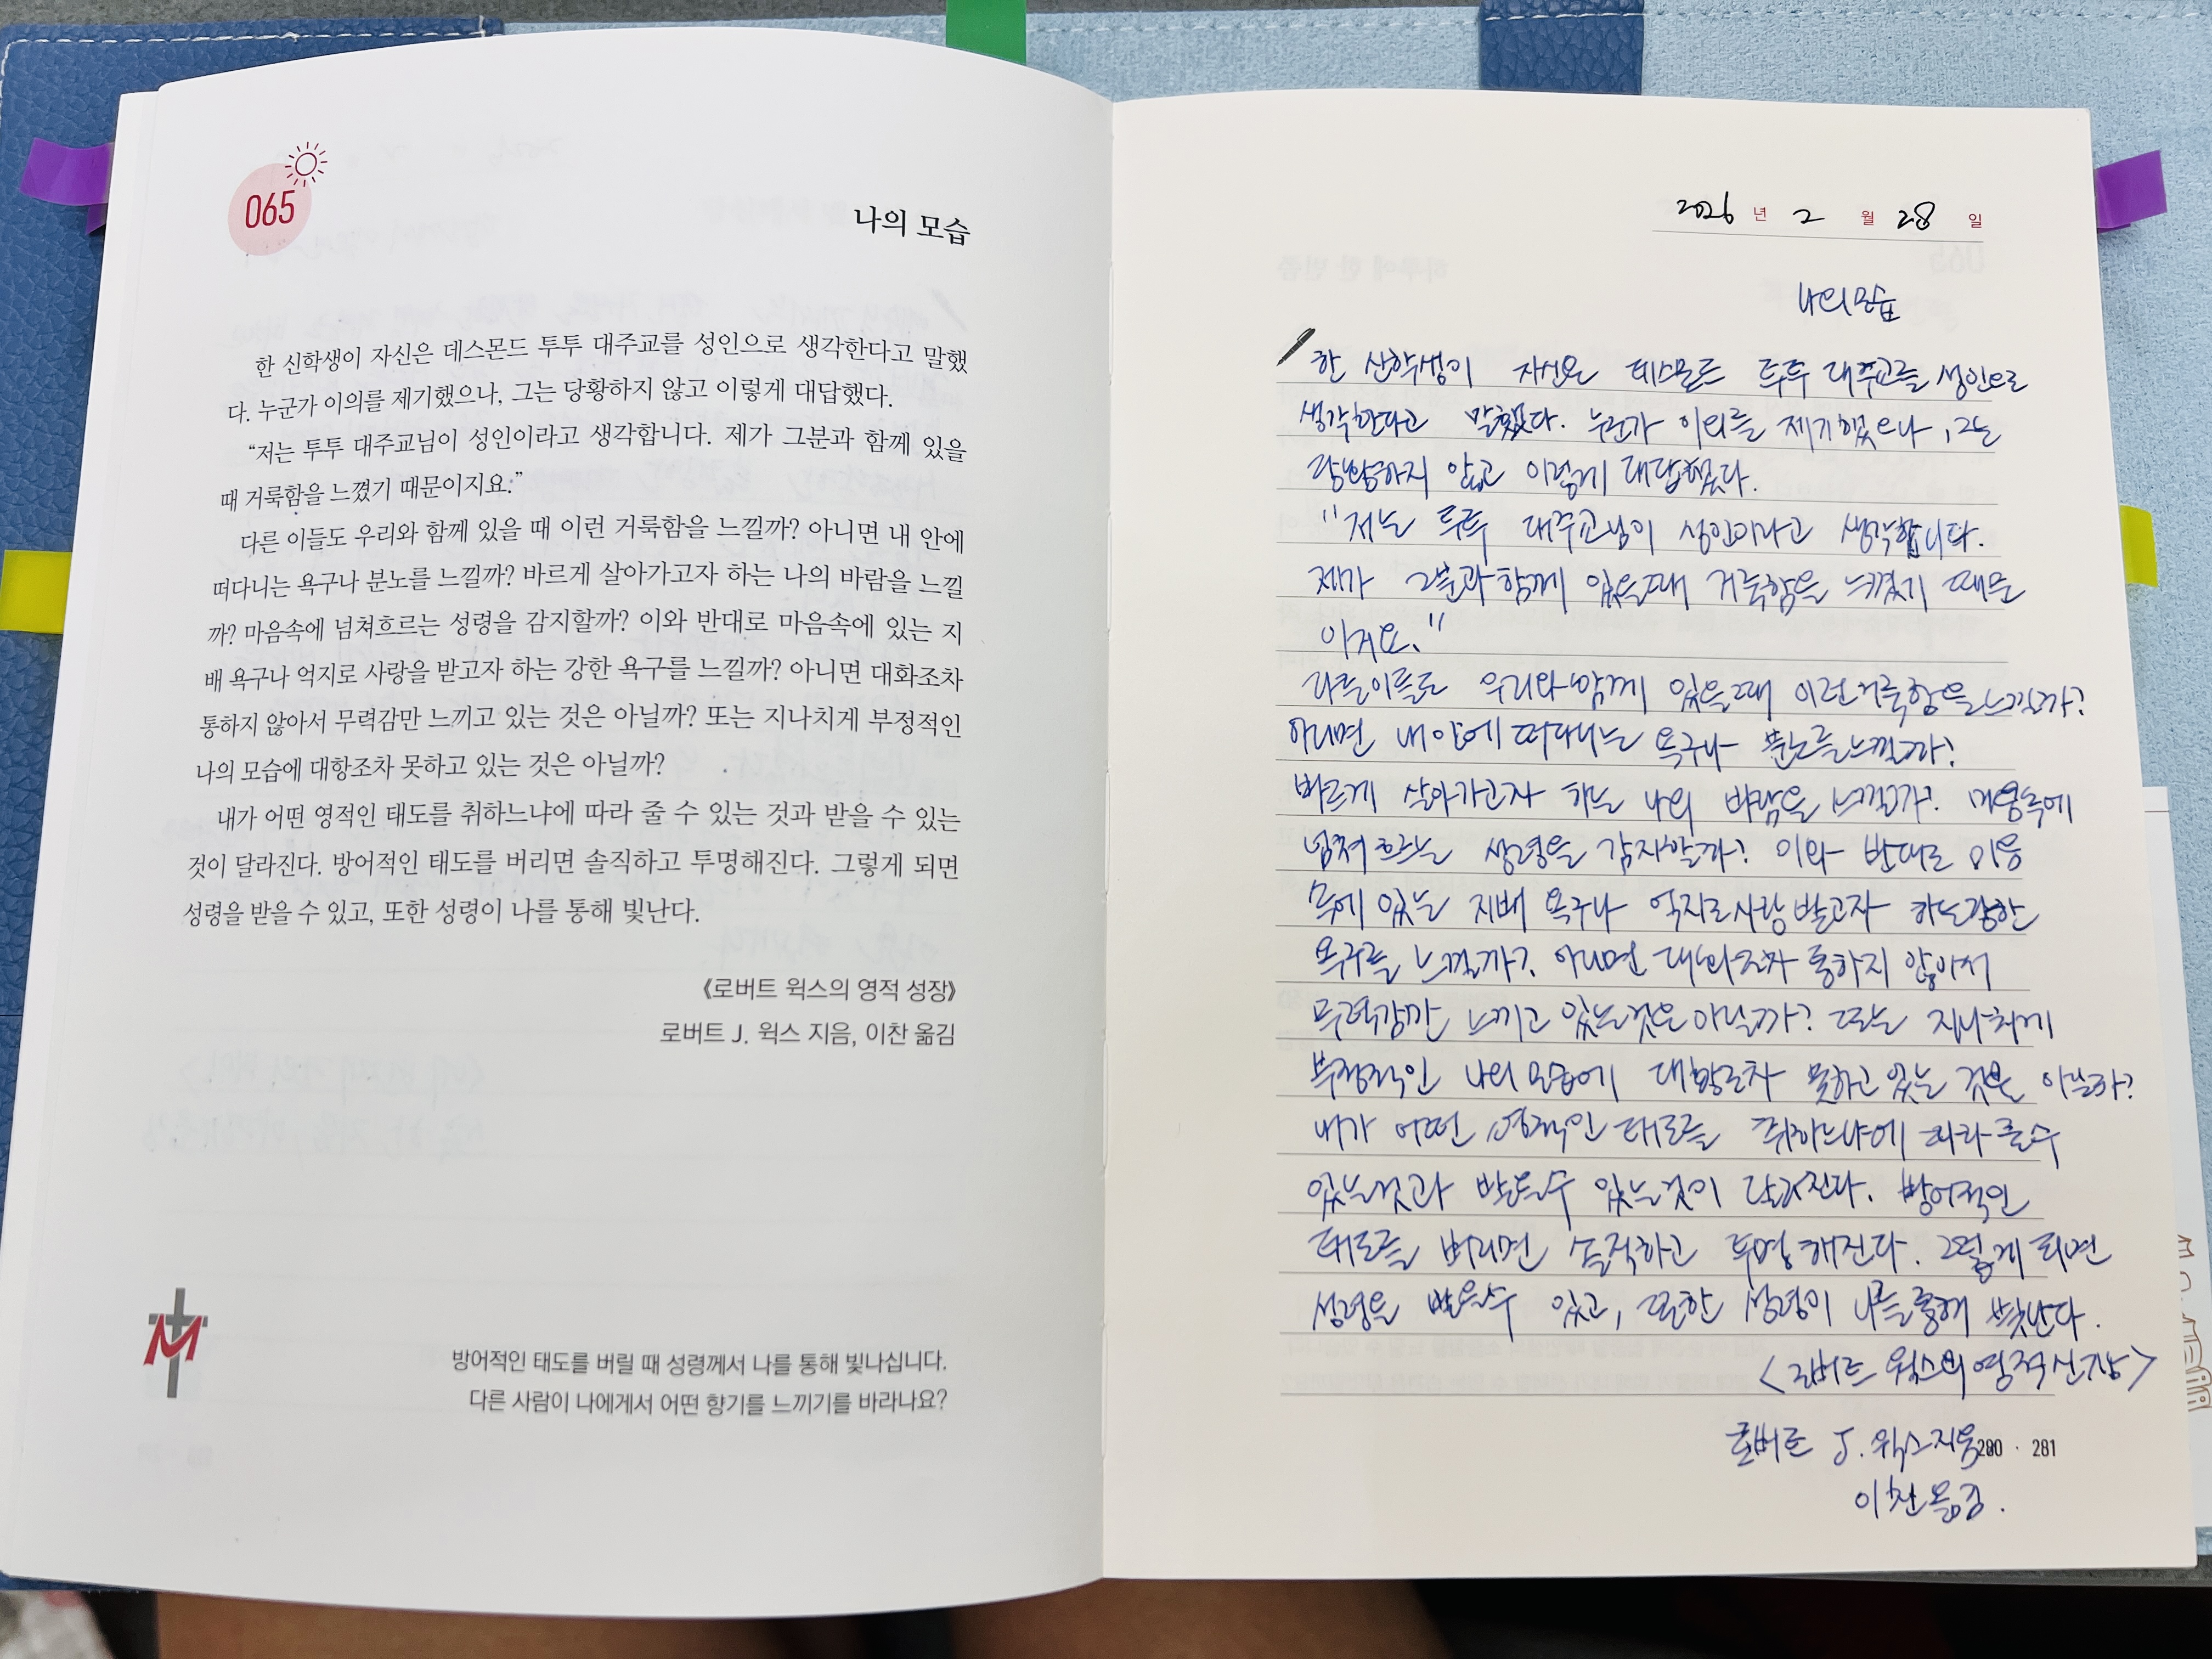 065
나의 모습
한 신학생이 자신은 데스몬드 투투 대주교를 성인으로 생각한다고 말했
다. 누군가 이의를 제기했으나, 그는 당황하지 않고 이렇게 대답했다.
“저는 투투 대주교님이 성인이라고 생각합니다. 제가 그분과 함께 있을
때 거룩함을 느꼈기 때문이지요.”
다른 이들도 우리와 함께 있을 때 이런 거룩함을 느낄까? 아니면 내 안에
떠다니는 욕구나 분노를 느낄까? 바르게 살아가고자 하는 나의 바람을 느낄
까? 마음속에 넘쳐흐르는 성령을 감지할까? 이와 반대로 마음속에 있는 지
배 욕구나 억지로 사랑을 받고자 하는 강한 욕구를 느낄까? 아니면 대화조차
통하지 않아서 무력감만 느끼고 있는 것은 아닐까? 또는 지나치게 부정적인
나의 모습에 대항조차 못하고 있는 것은 아닐까?
내가 어떤 영적인 태도를 취하느냐에 따라 줄 수 있는 것과 받을 수 있는
것이 달라진다. 방어적인 태도를 버리면 솔직하고 투명해진다. 그렇게 되면
성령을 받을 수 있고, 또한 성령이 나를 통해 빛난다.
《로버트 윅스의 영적 성장》
로버트 J. 윅스 지음, 이찬 옮김
M
방어적인 태도를 버릴 때 성령께서 나를 통해 빛나십니다.
다른 사람이 나에게서 어떤 향기를 느끼기를 바라나요?
2026 년 2 월 28 일
나의 모습
한 신학생이 자신은 데스몬드 투투 대주교를 성인으로
생각한다고 말했다. 누군가 이의를 제기했으나, 그는
당황하지 않고 이렇게 대답했다.
"저는 투투 대주교님이 성인이라고 생각합니다.
제가 그분과 함께 있을때 거룩함을 느꼈기 때문
이지요."
다른이들도 우리와 함께 있을때 이런거룩함을 느낄까?
아니면 내 안에 떠다니는 욕구나 분노를 느낄까?
바르게 살아가고자 하는 나의 바람을 느낄까? 마음속에
넘쳐흐르는 성령을 감지할까? 이와 반대로 마음
속에 있는 지배 욕구나 억지로사랑 받고자 하는강한
욕구를 느낄까? 아니면 대화조차 통하지 않아서
무력감만 느끼고 있는것은 아닐까? 또는 지나치게
부정적인 나의 모습에 대항조차 못하고 있는 것은 아닐까?
내가 어떤 영적인 태도를 취하느냐에 따라 줄수
있는것과 받을수 있는것이 달라진다. 방어적인
태도를 버리면 솔직하고 투명해진다. 그렇게 되면
성령을 받을수 있고, 또한 성령이 나를통해 빛난다.
<로버트 윅스의 영적성장>
로버트 J. 윅스지음
280 · 281
이찬 옮김.